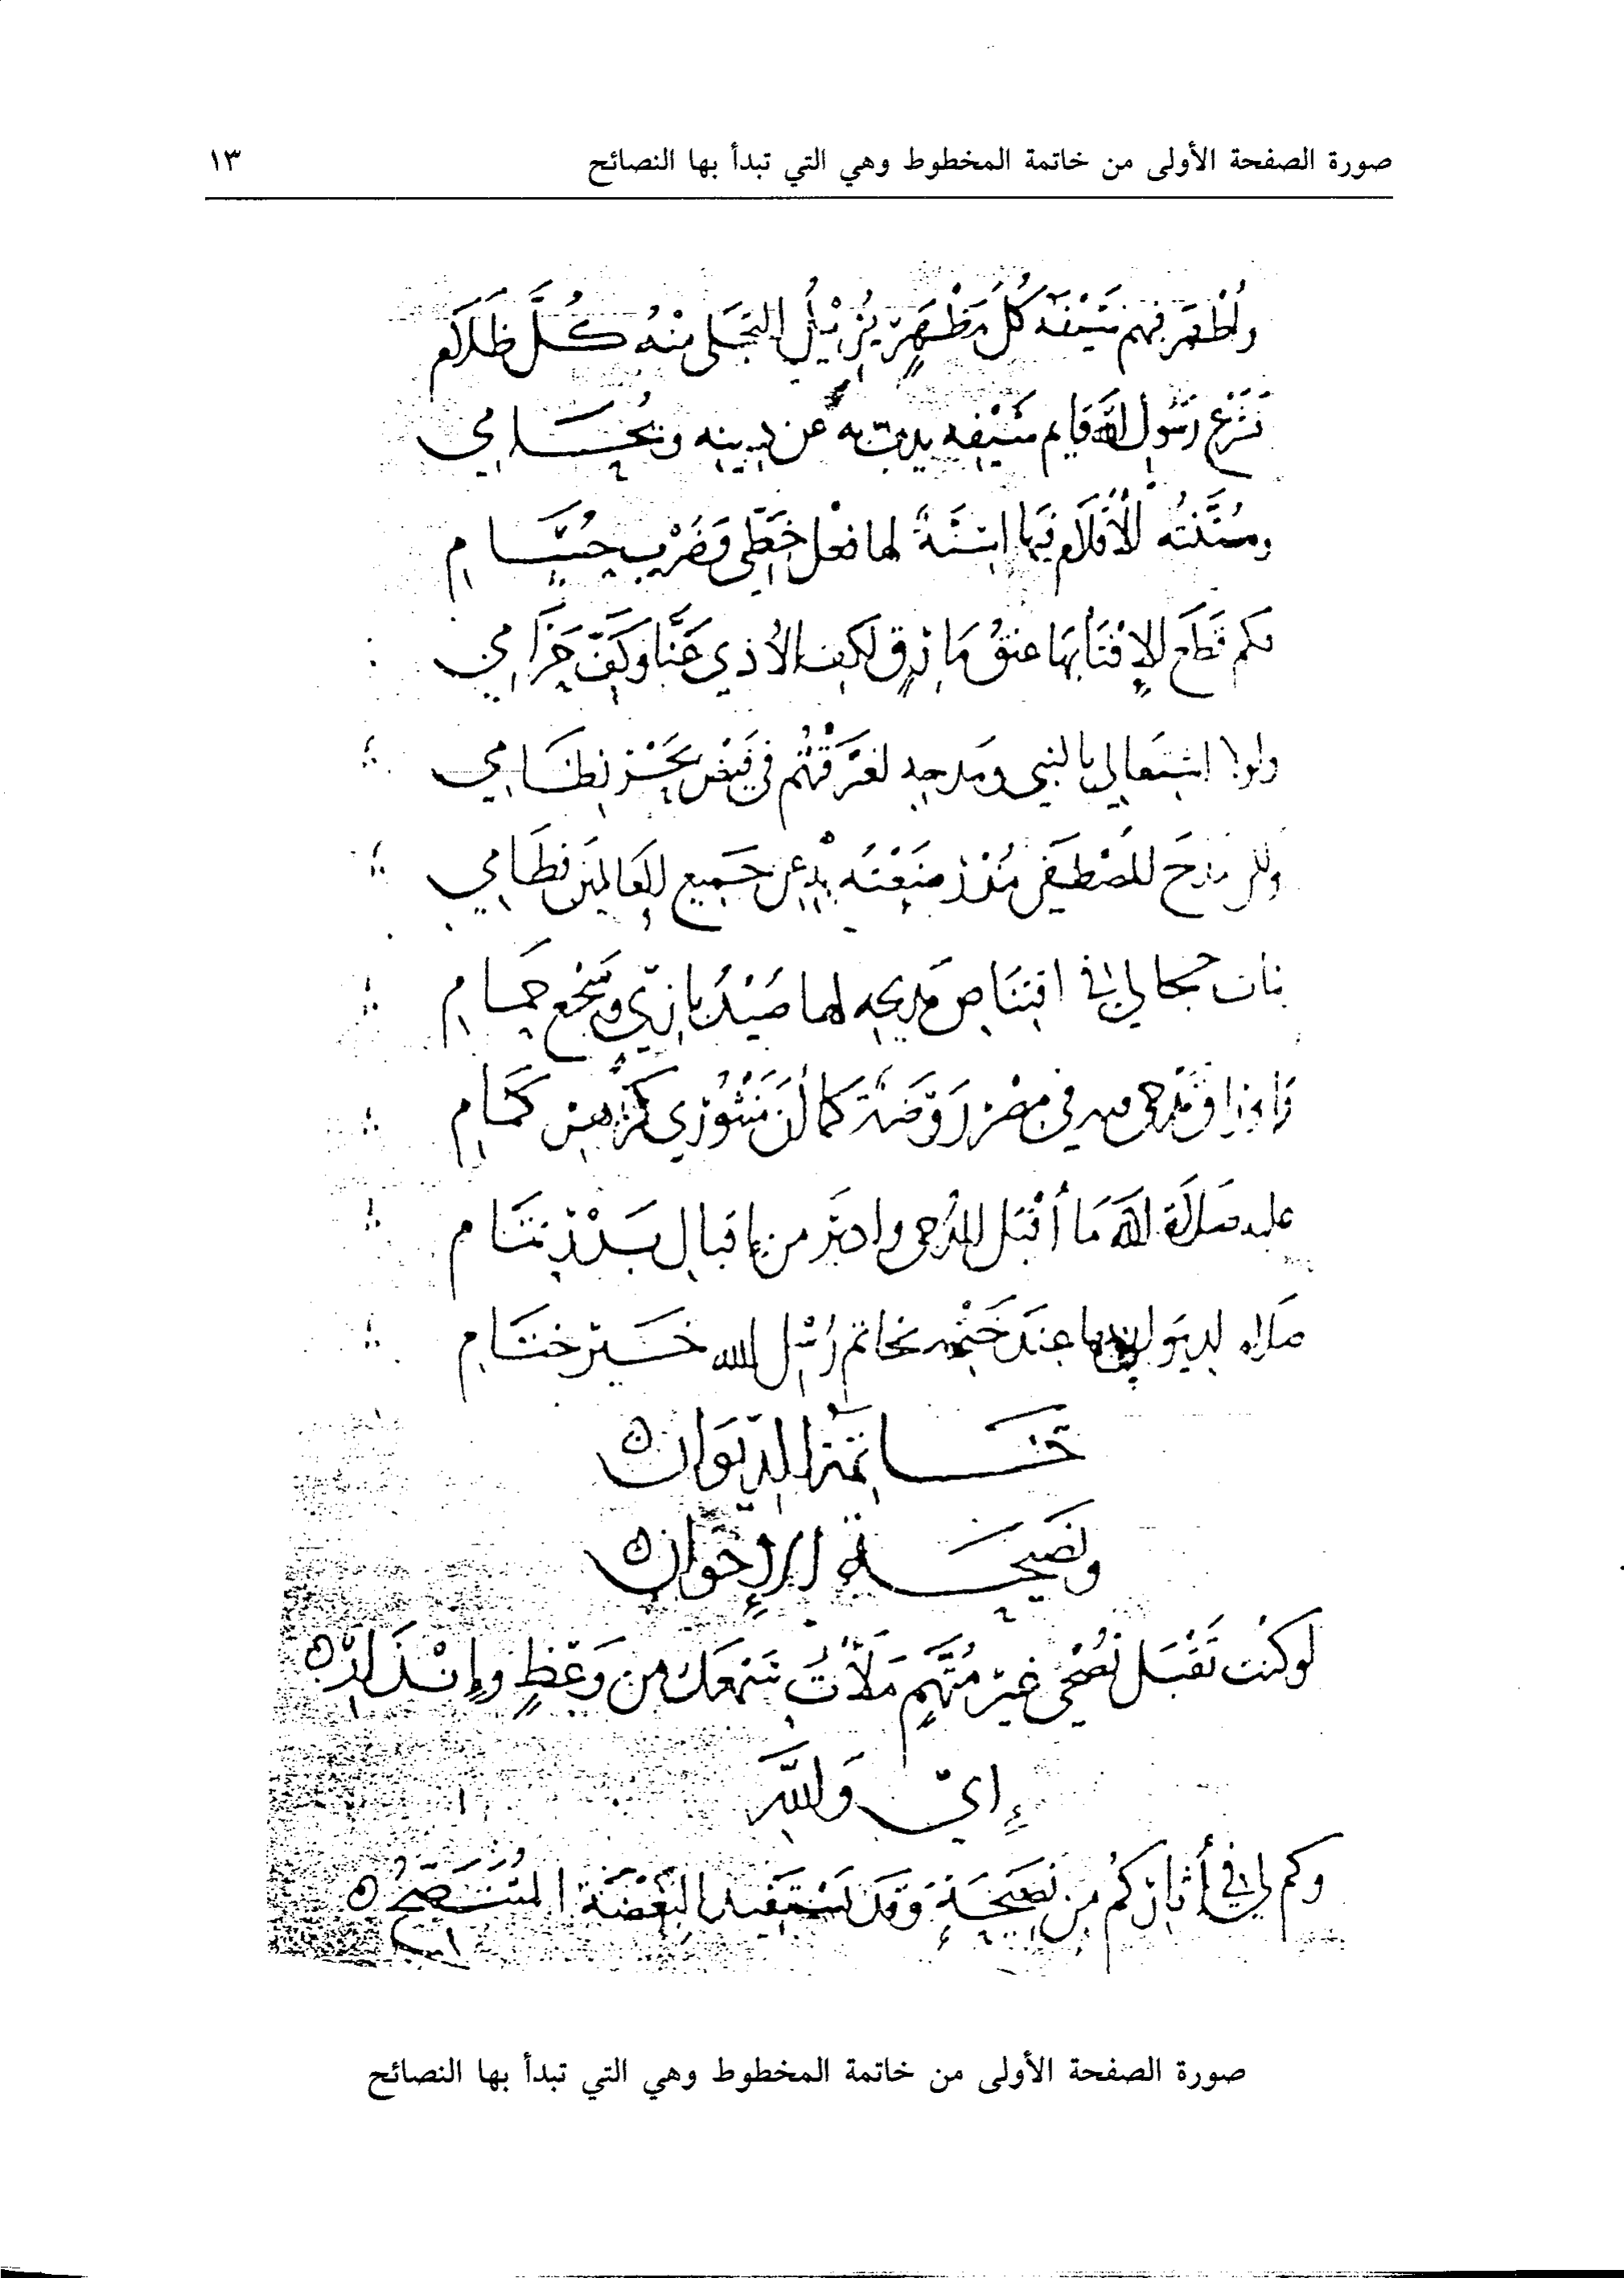 صورة الصفحة الأولى من خاتمة المخطوط وهي التي تبدأ بها النصائح ١٣
وأظهر فيهم سَيْفَهُ كُلَّ مَظْهَرٍ يُزِيْلُ التجلي مِنْهُ كُلَّ ظَلَام
بشرع رَسُول الله قايم سَيْفِه يذبّ به عن دينه ويُحَامي
لها فعل خَطِّي وَضَرْب حُسَام
فكم قَطَع الإفتا بها عنقُ مَارِقٍ لكف الأذي عَنَّا وَكَفِّ حَرَامي
ولولا اشتغالي بالنبي ومدحه لغَرَّقْتُهُم في فَيْض بَحْر نِظَامي
ولي مدح المُصْطَفَى مُذْ رَضَعْتُه بِهِ عن جَمِيع العَالَمِيْنَ فِطَامي
بنات في اقتناص مديحه لها صَيْدُ بازيّ وسَجْع حمام
مدحي في مصر رَوْضَة كما أن مَنْثُوْري كَزَهْر كمام
عليه صَلَاة الله مَا أَقْبَل الدُّجى وأدبر من إقبال بَدْر تَمَام
صلاة لديوان عِنْدَ خَتْمِه بخاتم رُسْل الله خَيْر ختَام
خَاتِمَة الدِّيْوَان
ونَصِيْحَة الإِخْوَان
لو كنت تَقْبَل نُصْحي غَيْر مُتَّهِمٍ مَلَأْتُ سَمْعَكَ مِن وَعْظٍ وإِنْذَارِ
إي وَالله
وكم لي في آثارِكُمْ مِن نَصِيْحَةٍ وَقَد يَسْتَفِيد البِغْضَةَ المُتَنَصِّحُ
صورة الصفحة الأولى من خاتمة المخطوط وهي التي تبدأ بها النصائح